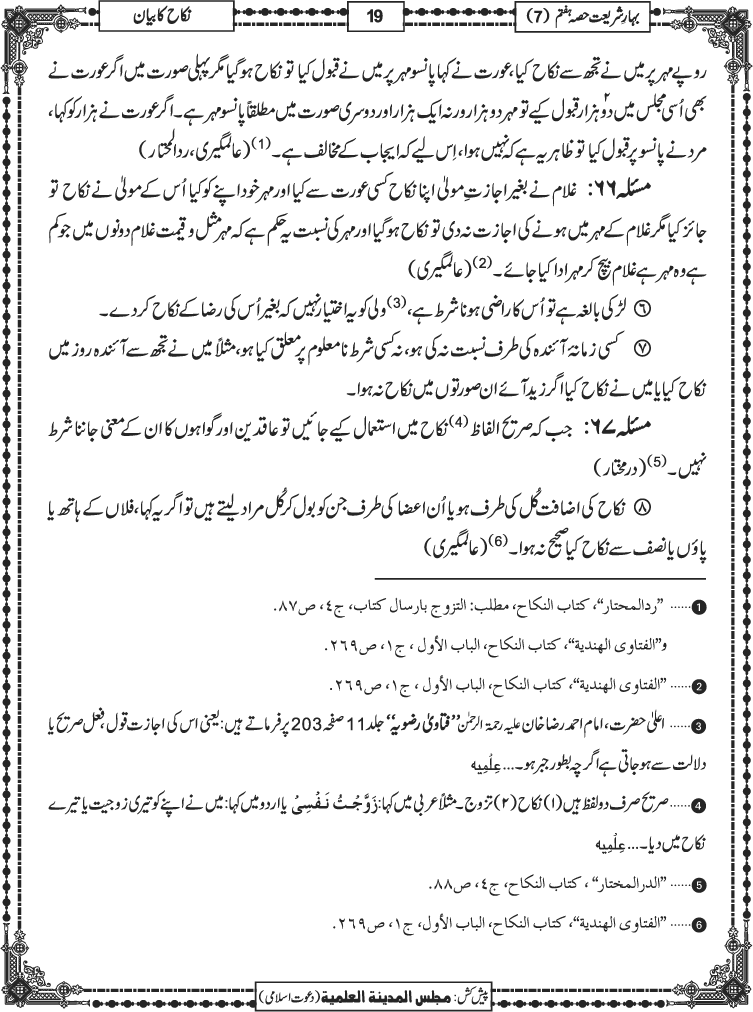 بہارِ شریعت حصہ ہفتم (7)
19
نکاح کا بیان
روپے مہر پر میں نے تجھ سے نکاح کیا، عورت نے کہا پانسو مہر پر میں نے قبول کیا تو نکاح ہوگیا مگر پہلی صورت میں اگر عورت نے
بھی اُسی مجلس میں دو۲ ہزار قبول کیے تو مہر دو ہزار ورنہ ایک ہزار اور دوسری صورت میں مطلقاً پانسو مہر ہے۔ اگر عورت نے ہزار کو کہا،
مرد نے پانسو پر قبول کیا تو ظاہر یہ ہے کہ نہیں ہوا، اِس لیے کہ ایجاب کے مخالف ہے۔(1) (عالمگیری، ردالمحتار)
مسئلہ ۶۶: غلام نے بغیر اجازتِ مولیٰ اپنا نکاح کسی عورت سے کیا اور مہر خود اپنے کو کیا اُس کے مولیٰ نے نکاح تو
جائز کیا مگر غلام کے مہر میں ہونے کی اجازت نہ دی تو نکاح ہوگیا اور مہر کی نسبت یہ حکم ہے کہ مہر مثل و قیمت غلام دونوں میں جو کم
ہے وہ مہر ہے غلام بیچ کر مہر ادا کیا جائے۔(2) (عالمگیری)
⑥ لڑکی بالغہ ہے تو اُس کا راضی ہونا شرط ہے،(3) ولی کو یہ اختیار نہیں کہ بغیر اُس کی رضا کے نکاح کر دے۔
⑦ کسی زمانۂ آئندہ کی طرف نسبت نہ کی ہو، نہ کسی شرط نامعلوم پر معلق کیا ہو، مثلاً میں نے تجھ سے آئندہ روز میں
نکاح کیا یا میں نے نکاح کیا اگر زید آئے ان صورتوں میں نکاح نہ ہوا۔
مسئلہ ۶۷: جب کہ صریح الفاظ(4) نکاح میں استعمال کیے جائیں تو عاقدین اور گواہوں کا ان کے معنی جاننا شرط
نہیں۔(5) (درمختار)
⑧ نکاح کی اضافت کُل کی طرف ہو یا اُن اعضا کی طرف جن کو بول کر کُل مراد لیتے ہیں تو اگر یہ کہا، فلاں کے ہاتھ یا
پاؤں یا نصف سے نکاح کیا صحیح نہ ہوا۔(6) (عالمگیری)
1 ......"ردالمحتار"، کتاب النکاح، مطلب: التزوج بارسال کتاب، ج٤، ص٨٧.
و"الفتاوی الهندية"، کتاب النکاح، الباب الأول، ج١، ص٢٦٩.
2 ......"الفتاوی الهندية"، کتاب النکاح، الباب الأول، ج١، ص٢٦٩.
3 ......اعلیٰ حضرت، امام احمد رضا خان علیہ رحمۃ الرحمٰن "فتاویٰ رضویہ" جلد 11 صفحہ 203 پر فرماتے ہیں: یعنی اس کی اجازت قول، فعل صریح یا
دلالت سے ہو جاتی ہے اگرچہ بطور جبر ہو۔...عِلْمِیه
4 ......صریح صرف دو لفظ ہیں (۱) نکاح (۲) تزوج۔ مثلاً عربی میں کہا: زَوَّجْتُ نَفْسِیْ یا اردو میں کہا: میں نے اپنے کو تیری زوجیت یا تیرے
نکاح میں دیا۔...عِلْمِیه
5 ......"الدرالمختار"، کتاب النکاح، ج٤، ص٨٨.
6 ......"الفتاوی الهندية"، کتاب النکاح، الباب الأول، ج١، ص٢٦٩.
پیش کش: مجلس المدینة العلمیة (دعوت اسلامی)